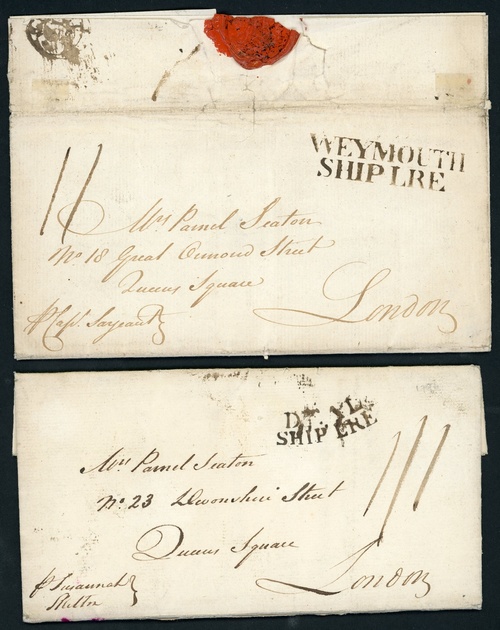 WEYMOUTH
SHIP LRE
11
Mrs Parnel Seaton
No 18 Great Ormond Street
Queens Square
London
p Capt. Sargeant
SHIP LRE
Mrs Parnel Seaton
111
No 23 Devonshire Street
Queens Square
London
p Susannah